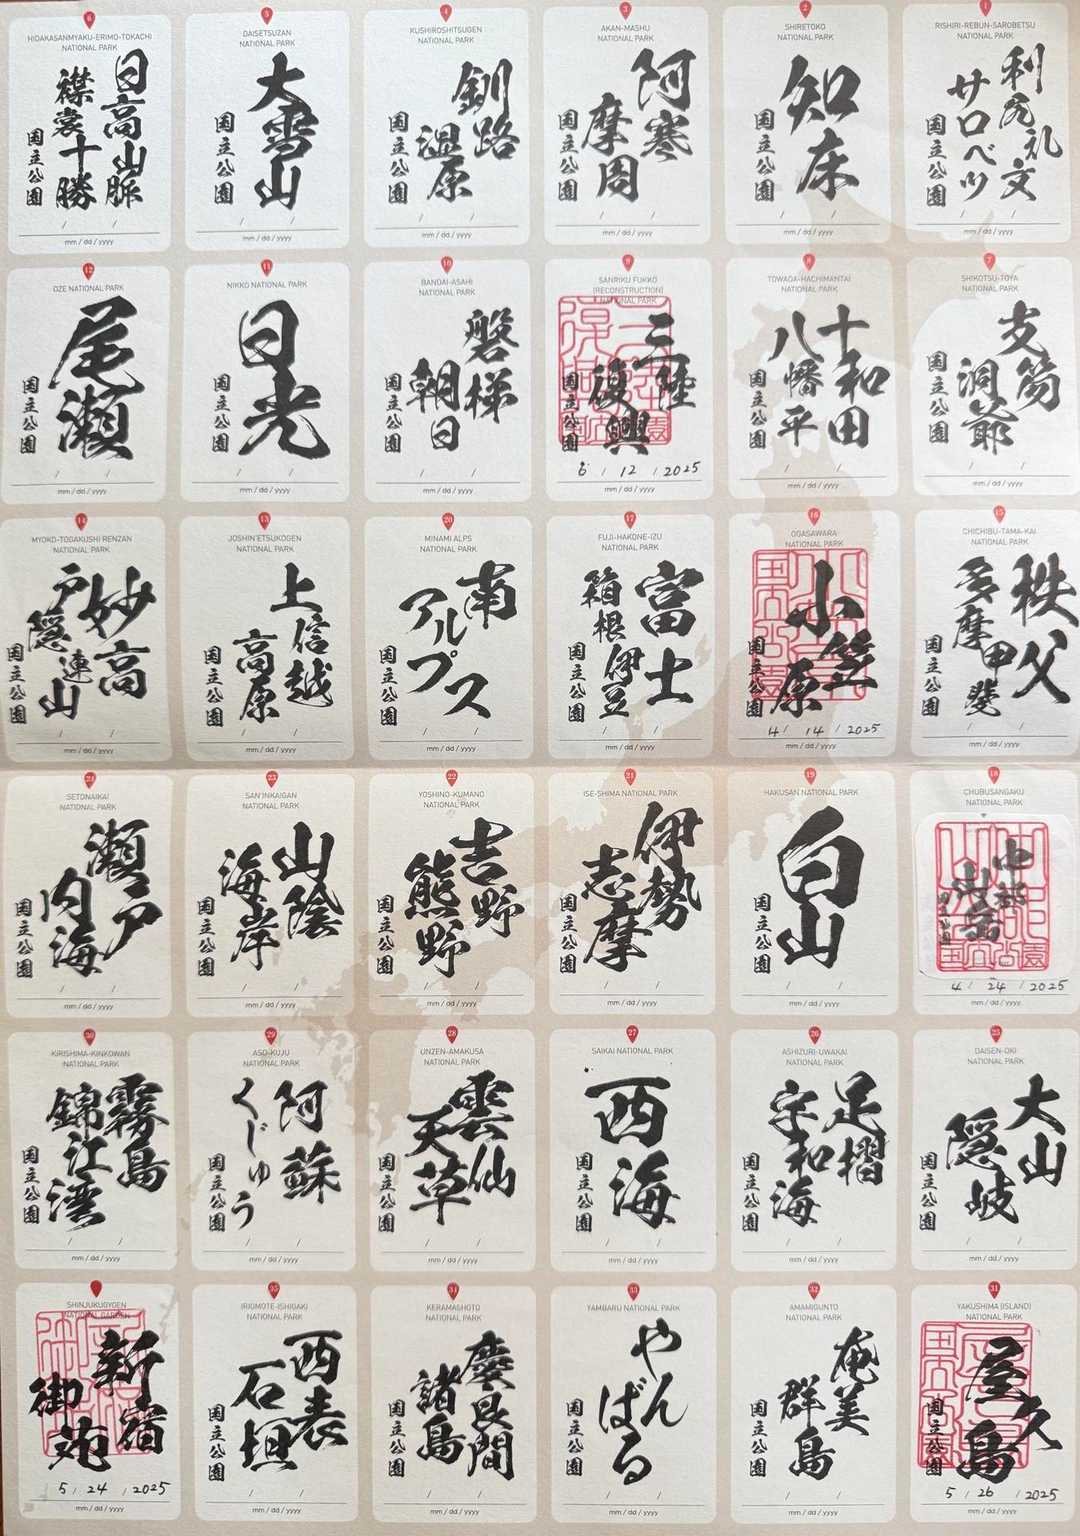 6
HIDAKASANMYAKU-ERIMO-TOKACHI
NATIONAL PARK
日高山脈
襟裳十勝
国立公園
/ /
mm / dd / yyyy
5
DAISETSUZAN
NATIONAL PARK
大雪山
国立公園
/ /
mm / dd / yyyy
4
KUSHIROSHITSUGEN
NATIONAL PARK
釧路
湿原
国立公園
/ /
mm / dd / yyyy
3
AKAN-MASHU
NATIONAL PARK
阿寒
摩周
国立公園
/ /
mm / dd / yyyy
2
SHIRETOKO
NATIONAL PARK
知床
国立公園
/ /
mm / dd / yyyy
1
RISHIRI-REBUN-SAROBETSU
NATIONAL PARK
利尻礼文
サロベツ
国立公園
/ /
mm / dd / yyyy
12
OZE NATIONAL PARK
尾瀬
国立公園
/ /
mm / dd / yyyy
11
NIKKO NATIONAL PARK
日光
国立公園
/ /
mm / dd / yyyy
10
BANDAI-ASAHI
NATIONAL PARK
磐梯
朝日
国立公園
/ /
mm / dd / yyyy
9
SANRIKU FUKKO
(RECONSTRUCTION)
NATIONAL PARK
三陸
復興
国立公園
6 / 12 / 2025
mm / dd / yyyy
8
TOWADA-HACHIMANTAI
NATIONAL PARK
十和田
八幡平
国立公園
/ /
mm / dd / yyyy
7
SHIKOTSU-TOYA
NATIONAL PARK
支笏
洞爺
国立公園
/ /
mm / dd / yyyy
14
MYOKO-TOGAKUSHI RENZAN
NATIONAL PARK
妙高
戸隠連山
国立公園
/ /
mm / dd / yyyy
13
JOSHIN'ETSUKOGEN
NATIONAL PARK
上信越
高原
国立公園
/ /
mm / dd / yyyy
20
MINAMI ALPS
NATIONAL PARK
南
アルプス
国立公園
/ /
mm / dd / yyyy
17
FUJI-HAKONE-IZU
NATIONAL PARK
富士
箱根伊豆
国立公園
/ /
mm / dd / yyyy
16
OGASAWARA
NATIONAL PARK
小笠原
国立公園
4 / 14 / 2025
mm / dd / yyyy
15
CHICHIBU-TAMA-KAI
NATIONAL PARK
秩父
多摩甲斐
国立公園
/ /
mm / dd / yyyy
24
SETONAIKAI
NATIONAL PARK
瀬戸
内海
国立公園
/ /
mm / dd / yyyy
23
SAN'INKAIGAN
NATIONAL PARK
山陰
海岸
国立公園
/ /
mm / dd / yyyy
22
YOSHINO-KUMANO
NATIONAL PARK
吉野
熊野
国立公園
/ /
mm / dd / yyyy
21
ISE-SHIMA NATIONAL PARK
伊勢
志摩
国立公園
/ /
mm / dd / yyyy
19
HAKUSAN NATIONAL PARK
白山
国立公園
/ /
mm / dd / yyyy
18
CHUBUSANGAKU
NATIONAL PARK
中部
山岳
国立公園
4 / 24 / 2025
mm / dd / yyyy
30
KIRISHIMA-KINKOWAN
NATIONAL PARK
霧島
錦江湾
国立公園
/ /
mm / dd / yyyy
29
ASO-KUJU
NATIONAL PARK
阿蘇
くじゅう
国立公園
/ /
mm / dd / yyyy
28
UNZEN-AMAKUSA
NATIONAL PARK
雲仙
天草
国立公園
/ /
mm / dd / yyyy
27
SAIKAI NATIONAL PARK
西海
国立公園
/ /
mm / dd / yyyy
26
ASHIZURI-UWAKAI
NATIONAL PARK
足摺
宇和海
国立公園
/ /
mm / dd / yyyy
25
DAISEN-OKI
NATIONAL PARK
大山
隠岐
国立公園
/ /
mm / dd / yyyy
SHINJUKUGYOEN
NATIONAL GARDEN
新宿
御苑
5 / 24 / 2025
mm / dd / yyyy
35
IRIOMOTE-ISHIGAKI
NATIONAL PARK
西表
石垣
国立公園
/ /
mm / dd / yyyy
34
KERAMASHOTO
NATIONAL PARK
慶良間
諸島
国立公園
/ /
mm / dd / yyyy
33
YAMBARU NATIONAL PARK
やん
ばる
国立公園
/ /
mm / dd / yyyy
32
AMAMIGUNTO
NATIONAL PARK
奄美
群島
国立公園
/ /
mm / dd / yyyy
31
YAKUSHIMA (ISLAND)
NATIONAL PARK
屋久島
国立公園
5 / 26 / 2025
mm / dd / yyyy